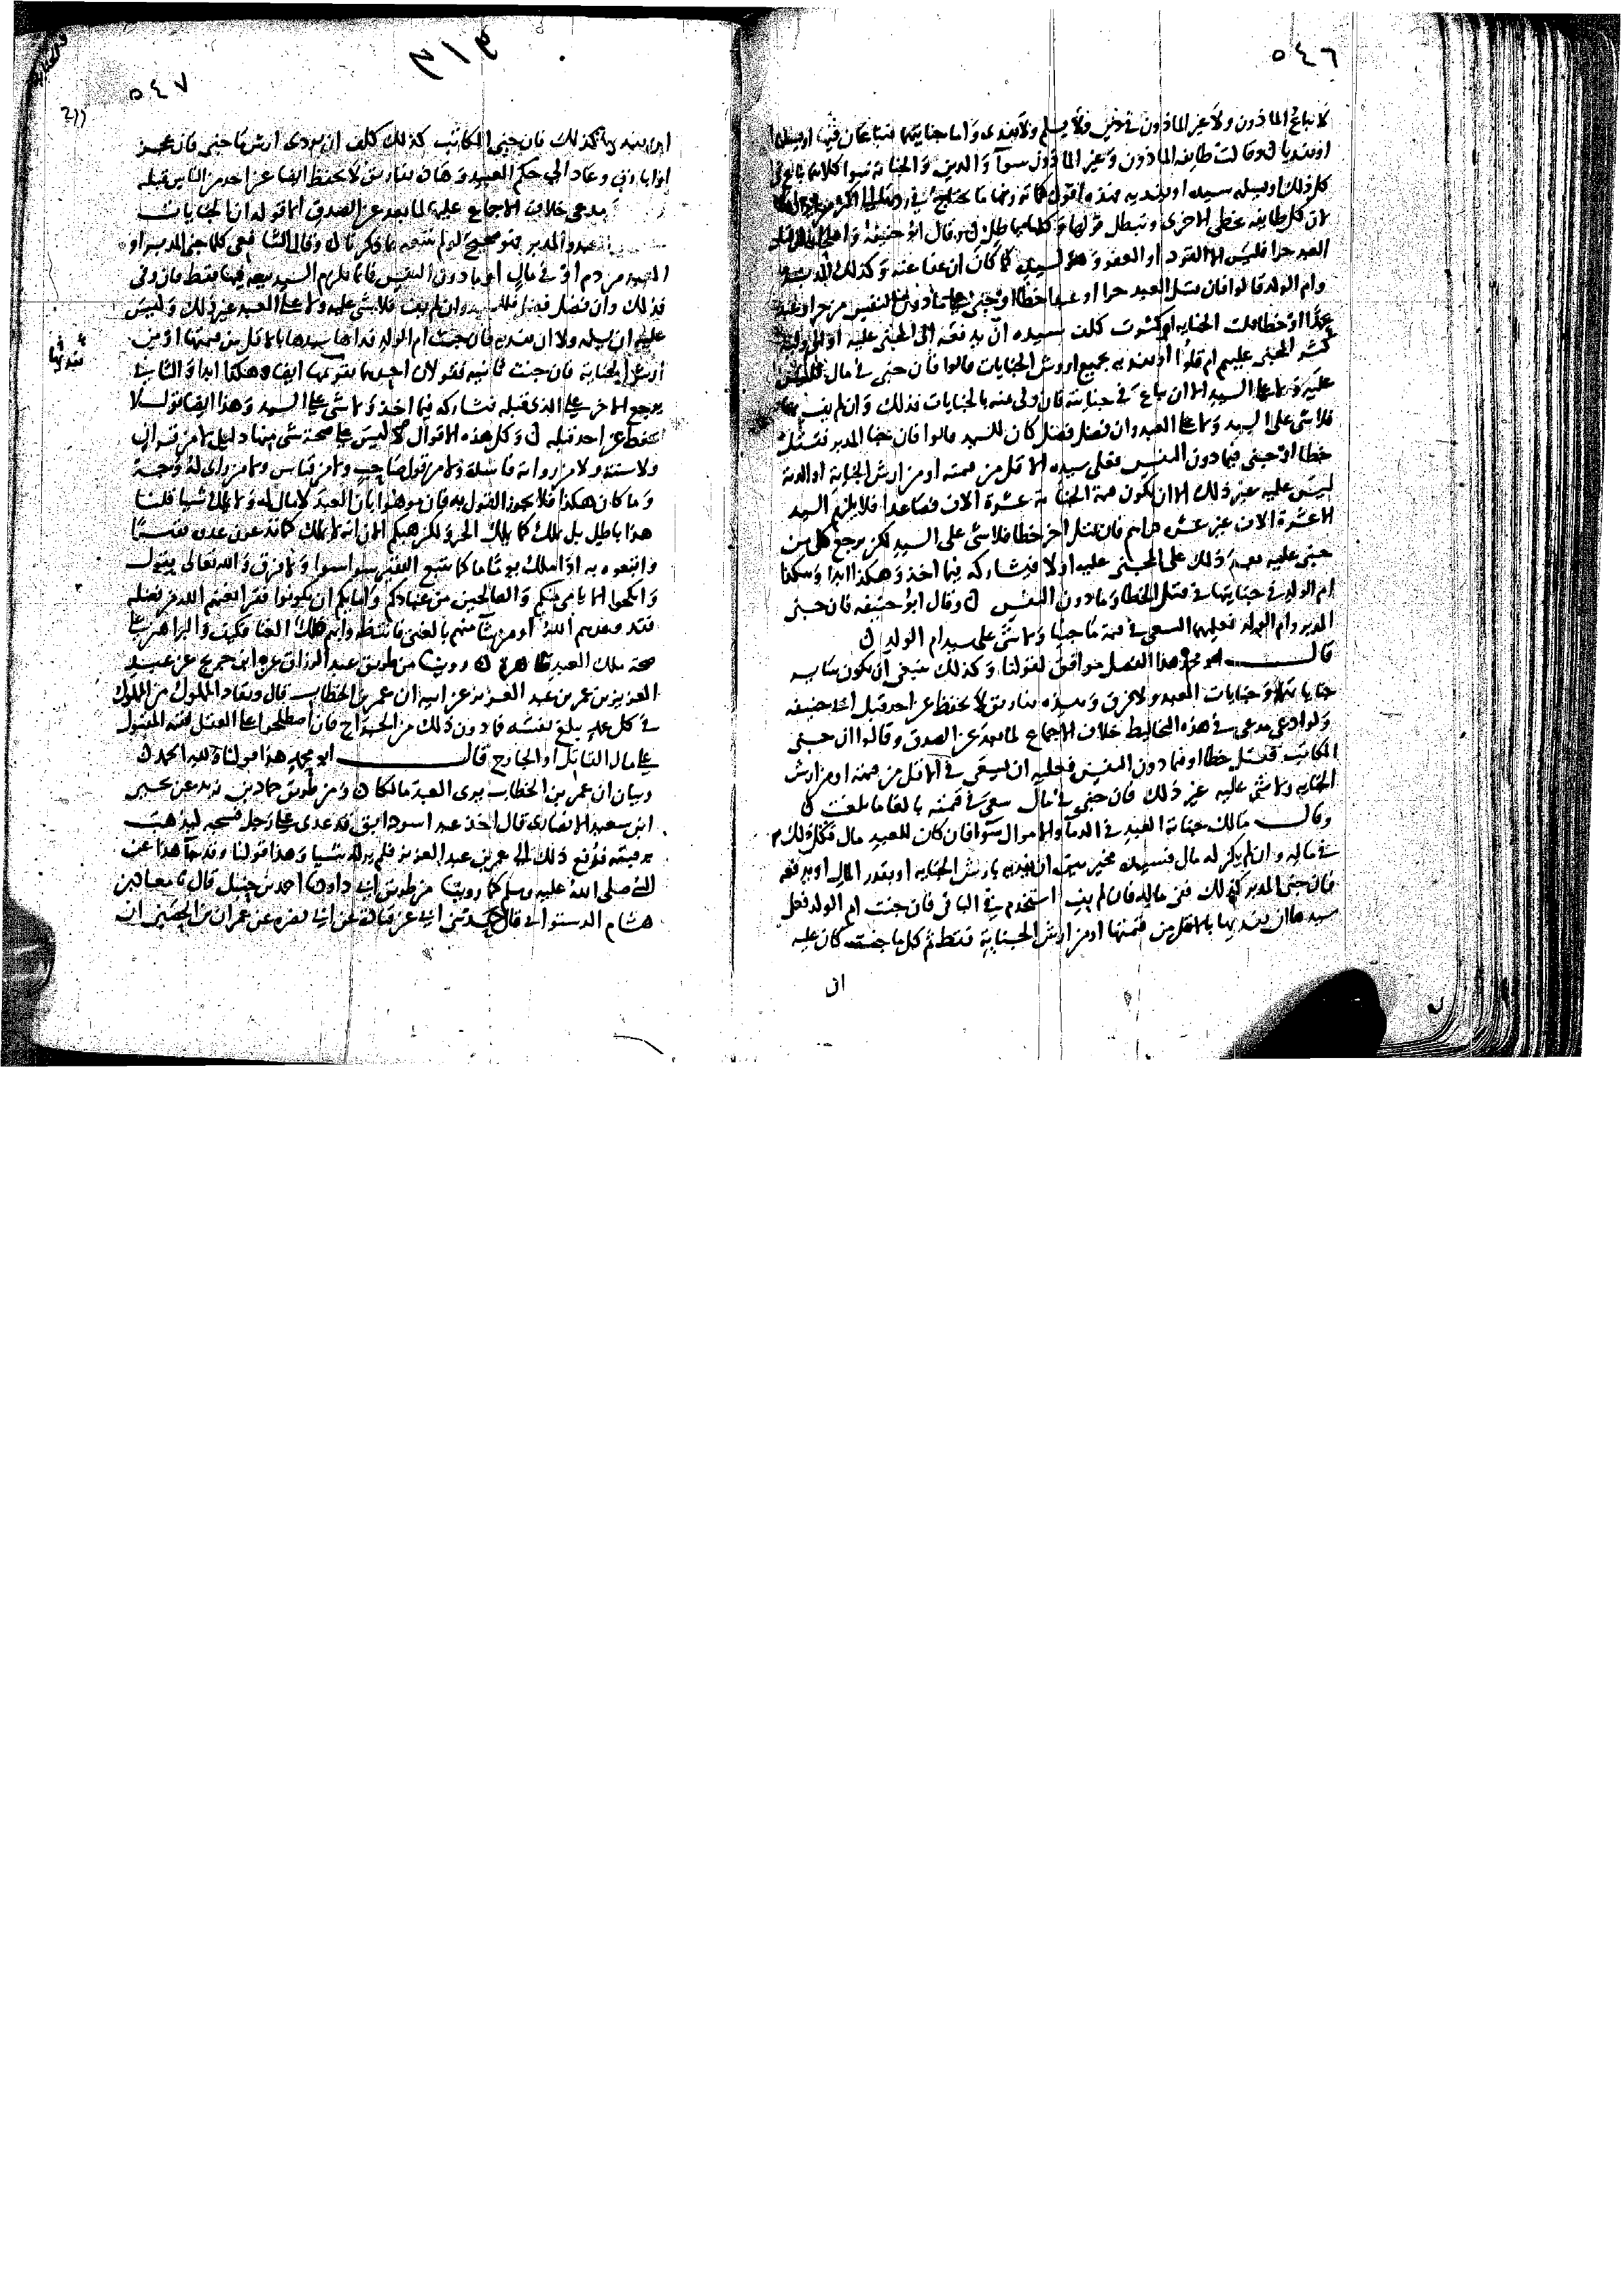 ٥٤٦
لا يباع الماذون ولا غير الماذون في دين ولا يسلم ولا يفدى واما جنايتهما فيباعان فيها او يسلما
او يفديا وقالت طايفة الماذون وغير الماذون سوآ والدين والجناية سوا كلاهما يباع في
كل ذلك او يسلمه سيده او يفديه فهذه اقوال كما ترونها ما يحتاج في رد
لان كل طايفة تخطي الاخرى وتبطل قولها وكلها باطل وقال ابو حنيفة واصحابه ان قتل
العبد حرا فليس الا القود او العفو وهو لسيده كما كان ان عفا عنه وكذلك المدبر
وام الولد قالوا فان قتل العبد حرا او عبدا خطا او جنى على ما دون النفس من حر او عبد
عمدا او خطا قلت الجناية او كثرت كلف سيده ان يدفعه الى المجنى عليه او الى وليه
كثر المجنى عليهم ام قلوا او يفديه بجميع اروش الجنايات قالوا فان جنى في مال فليس
عليه ولا على السيد الا ان يباع في جنايته فان وفى ثمنه بالجنايات فذلك وان لم يف
فلا شي على السيد ولا على العبد وان فضل فضل كان للسيد قالوا فان جنا المدبر فقتل
خطا او جنى فيما دون النفس فعلى سيده الاقل من قيمته او من ارش الجناية او الدية
ليس عليه غير ذلك الا ان تكون قيمة الجناية عشرة الاف فصاعدا فلا يلزم السيد
الا عشرة الاف غير عشرة دراهم فان قتل اخر خطا فلا شي على السيد لكن يرجع كل من
جنى عليه بعد ذلك على المجنى عليه اولا فيشاركه فيما اخذ وهكذا ابدا وهكذا
ام الولد في جنايتها في قتل الخطا وما دون النفس وقال ابو حنيفة فان جنى
المدبر وام الولد فعليهما السعي في قيمة ما جنيا ولا شي على سيد ام الولد
قال ابو محمد هذا الفصل موافق لقولنا وكذلك ينبغي ان يكون ساير
جناياتهما وجنايات العبد ولا فرق وهذه تفاريق لا تحفظ عن احد قبل ابي حنيفة
ولو ادعى مدعي في هذه التخاليط خلاف الاجماع لما بعد عن الصدق وقالوا ان جنى
المكاتب فقتل خطا او فيما دون النفس فعليه ان يسعى في الاقل من قيمته او من ارش
الجناية ولا شي عليه غير ذلك فان جنى في مال سعى في قيمته بالغا ما بلغت
وقال مالك جناية العبد في الدمآ والاموال سوا فان كان للعبد مال فكل ذلك
في ماله وان لم يكن له مال فسيده مخير بين ان يفديه بارش الجناية او بقدر المال او يدفعه
فان جنى المدبر كذلك ففي ماله فان لم يف استخدم في الباقي فان جنت ام الولد فعلى
سيدها ان يفديها بالاقل من قيمتها او من ارش الجناية فقط ثم كل ما جنت كان عليه
ان
٥٤٧
٣١٣
ان يفديها كذلك فان جنى المكاتب كذلك كلف ان يودي ارش ما جنى فان عجز
او ابا رق وعاد الى حكم العبيد وهذه تفاريق لا تحفظ ايضا عن احد من الناس قبله
يدعى خلاف الاجماع عليها لما بعد عن الصدق الا قوله ان الجنايات
العبد والمدبر فهو صحيح لو لم يتبعه بما ذكر قال وقال الشافعي كلما جنى المدبر او
العبد من دم او في مال او ما دون النفس فانما يلزم السيد بيعه فيها فقط فان وفى
فذلك وان فضل فضل فللسيد وان لم يف فلا شي عليه ولا على العبد غير ذلك وليس
عليه ان يسلمه ولا ان يفديه فان جنت ام الولد فداها سيدها بالاقل من قيمتها او من
ارش الجناية فان جنت ثانيه فقولان احدهما يفديها ايضا وهكذا ابدا والثاني
يرجع الاخر على الذي قبله فيشاركه فيما اخذ ولا شي على السيد وهذا ايضا قول لا
يحفظ عن احد قبله وكل هذه الاقوال ليس على صحة شي منها دليل لا من قران
ولا سنة ولا من رواية فاسدة ولا من قول صاحب ولا من قياس ولا من راى له وجه
وما كان هكذا فلا يجوز القول به فان موهوا بان العبد لا مال له ولا يملك شيا قلنا
هذا باطل بل يملك كما يملك الحر ولكن هبكم الان انه لا يملك كما تدعون عدوه فقيرا
واتبعوه به اذا ملك يوما ما كما يتبع الفقير سوا سوا ولا فرق والله تعالى يقول
وانكحوا الايامى منكم والصالحين من عبادكم وامايكم ان يكونوا فقرا يغنهم الله من فضله
فقد وعدهم الله او من شآ منهم بالغنى فانتظروا بهم ذلك الغنا فكيف والبراهين على
صحة ملك العبد ظاهرة روينا من طريق عبد الرزاق عن ابن جريج عن عبد
العزيز بن عمر بن عبد العزيز عن ابيه ان عمر بن الخطاب قال ويقاد المملوك من المملوك
في كل عمد يبلغ نفسه فما دون ذلك من الجراح فان اصطلحوا على العقل فقيمة المقتول
على مال القاتل او الجارح قال ابو محمد هذا قولنا ولله الحمد
وبيان ان عمر بن الخطاب يرى العبد مالكا ومن طريق حماد بن زيد عن يحيى
ابن سعيد الانصاري قال اخذ عبد اسود ابق قد عدى على رجل فشجه ليذهب
برقبته فرفع ذلك الى عمر بن عبد العزيز فلم ير له شيا وهذا قولنا وقد جآ هذا عن
النبي صلى الله عليه وسلم كما روينا من طريق ابي داود نا احمد بن حنبل قال نا معاذ بن
هشام الدستوائي قال حدثني ابي عن قتادة عن ابي نضرة عن عمران بن الحصين ان